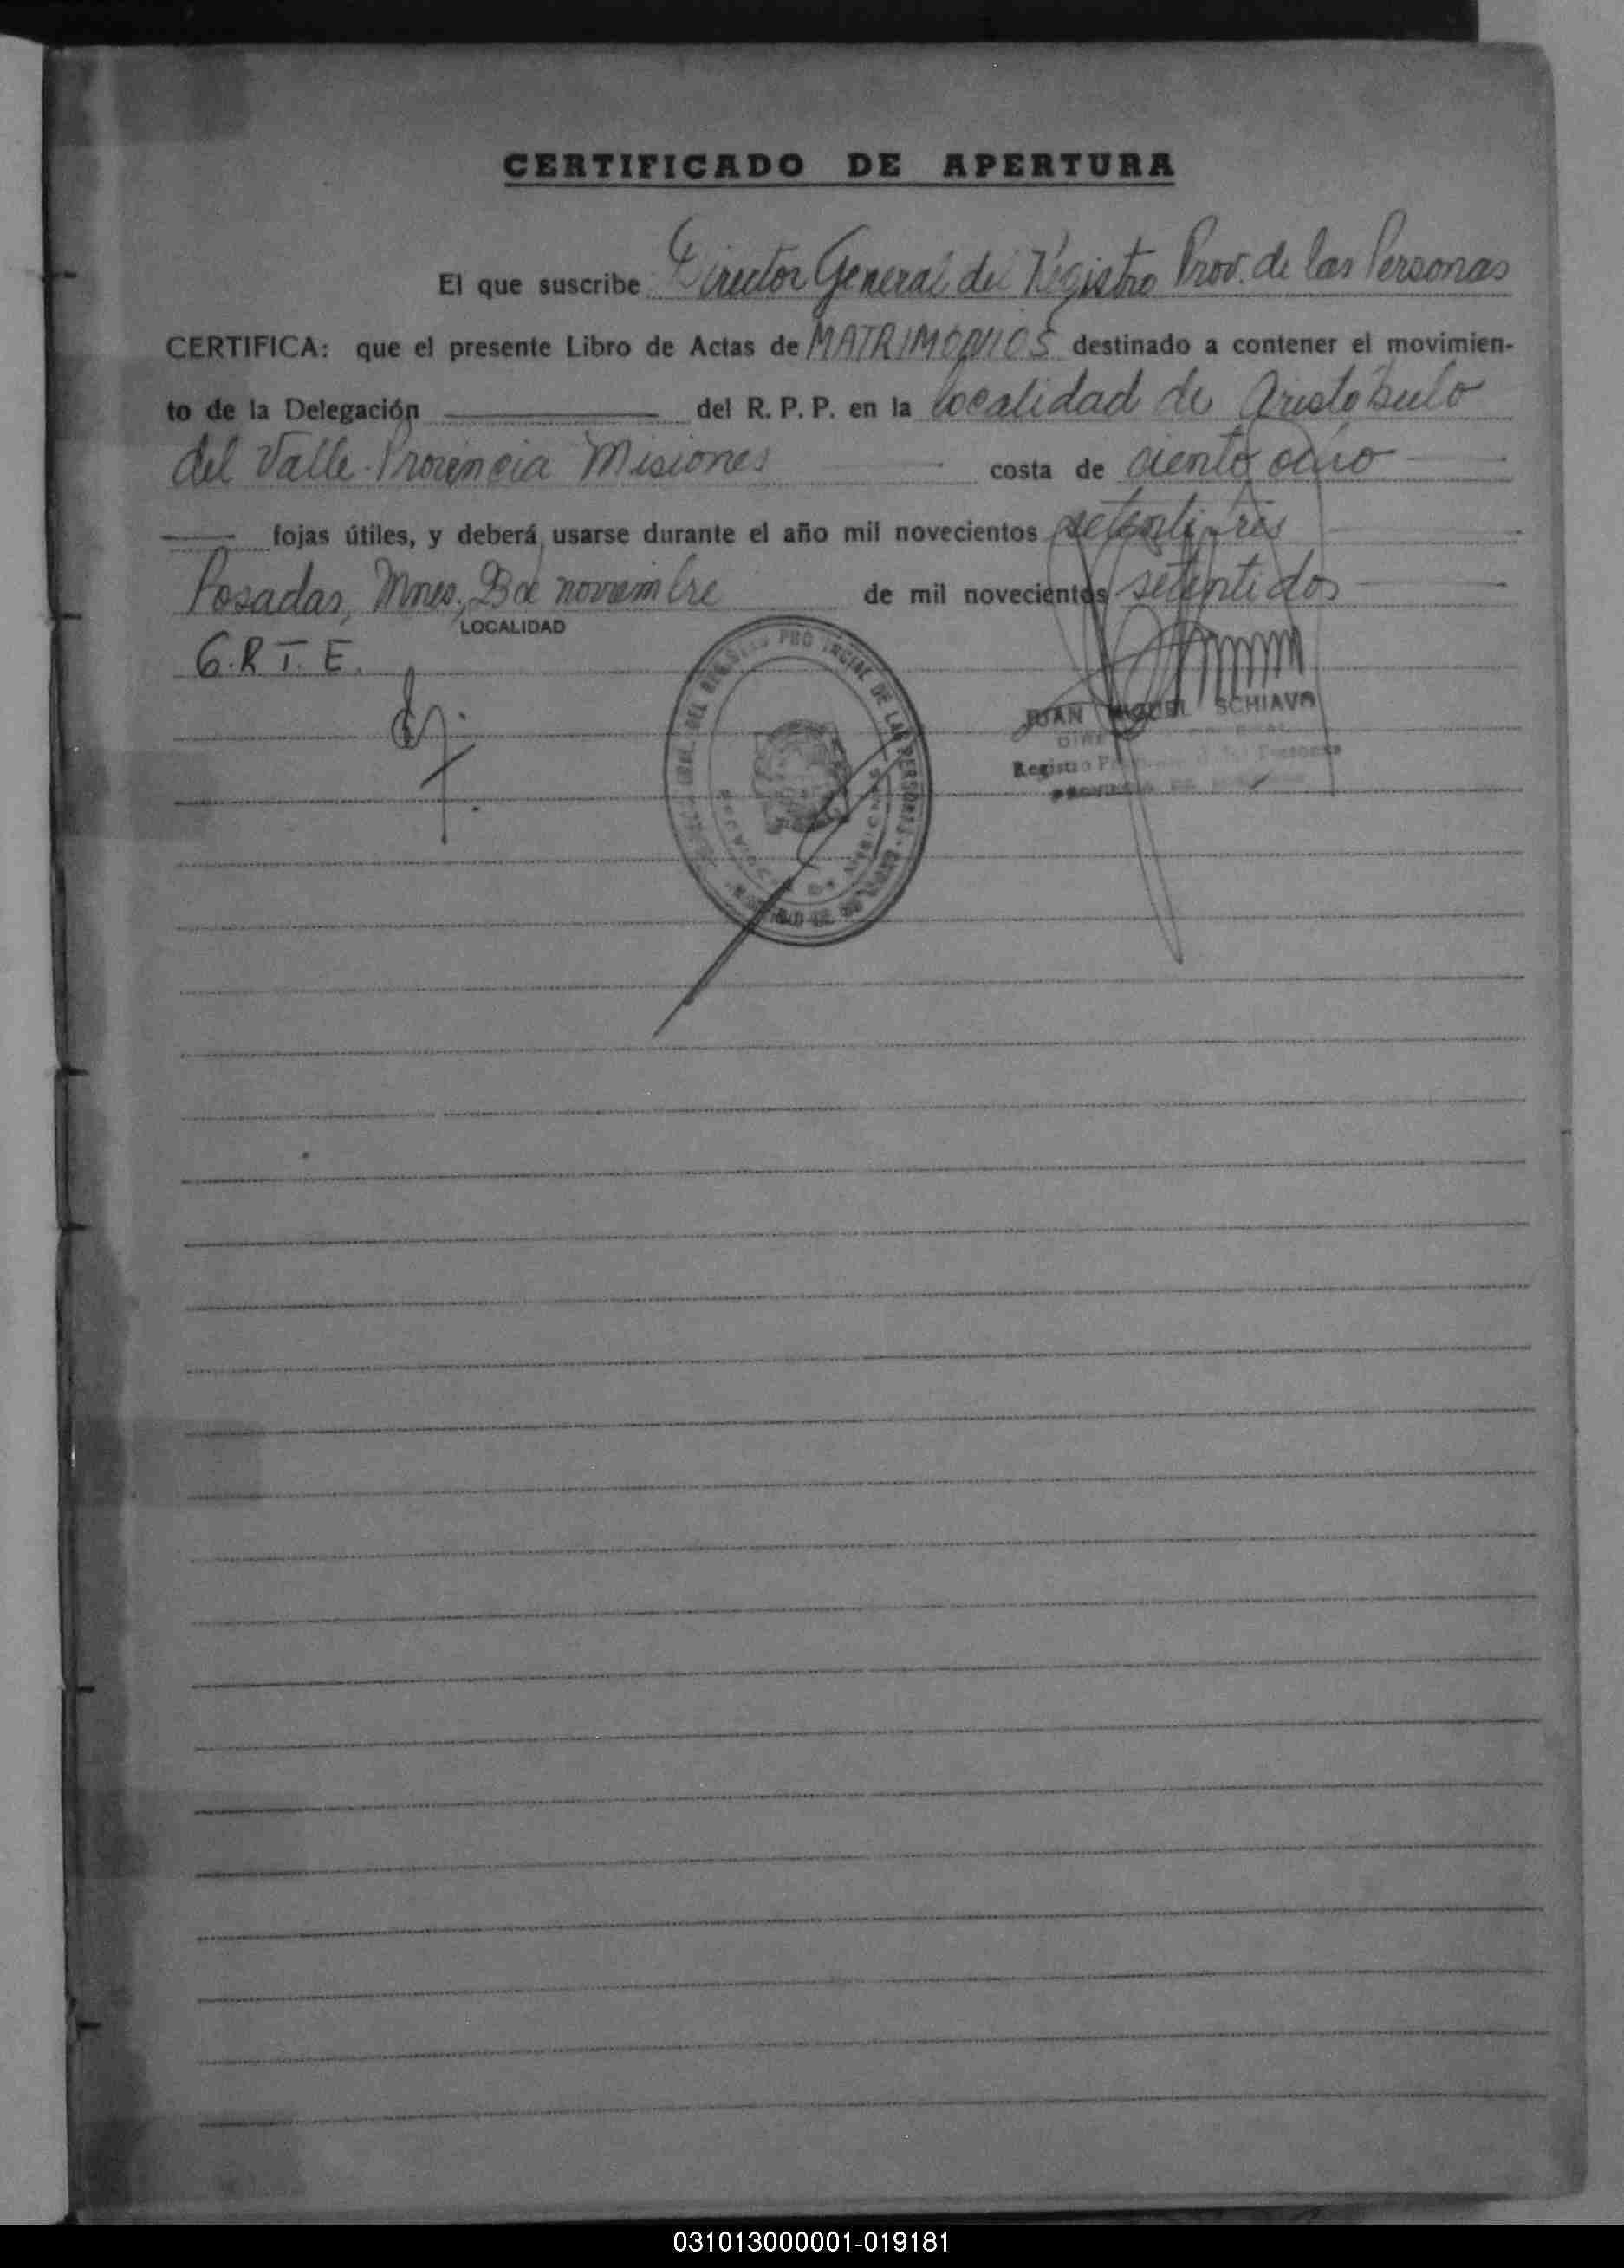 CERTIFICADO DE APERTURA
El que suscribe Director General del Registro Prov. de las Personas
CERTIFICA: que el presente Libro de Actas de MATRIMONIOS destinado a contener el movimien-
to de la Delegación del R. P. P. en la localidad de Aristóbulo
del Valle Provincia Misiones costa de ciento
fojas útiles, y deberá usarse durante el año mil novecientos setentitrés
Posadas, Mnes, de noviembre de mil novecientos setentidos
LOCALIDAD
G.R.T.E.
DEL REGISTRO PROVINCIAL DE LAS PERSONAS
JUAN MIGUEL SCHIAVO
Registro
031013000001-019181